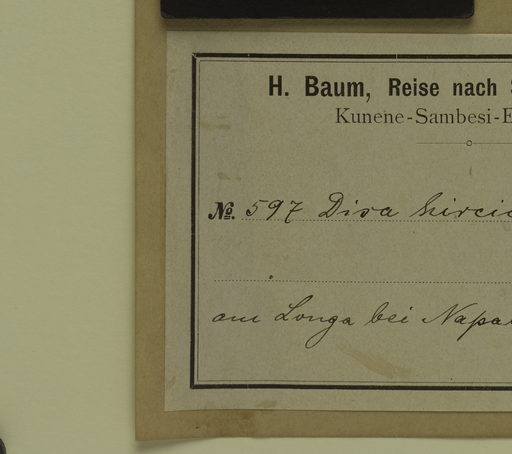 H. Baum, Reise nach
Kunene-Sambesi-E
№. 597 Disa hircic
am Longa bei Napa